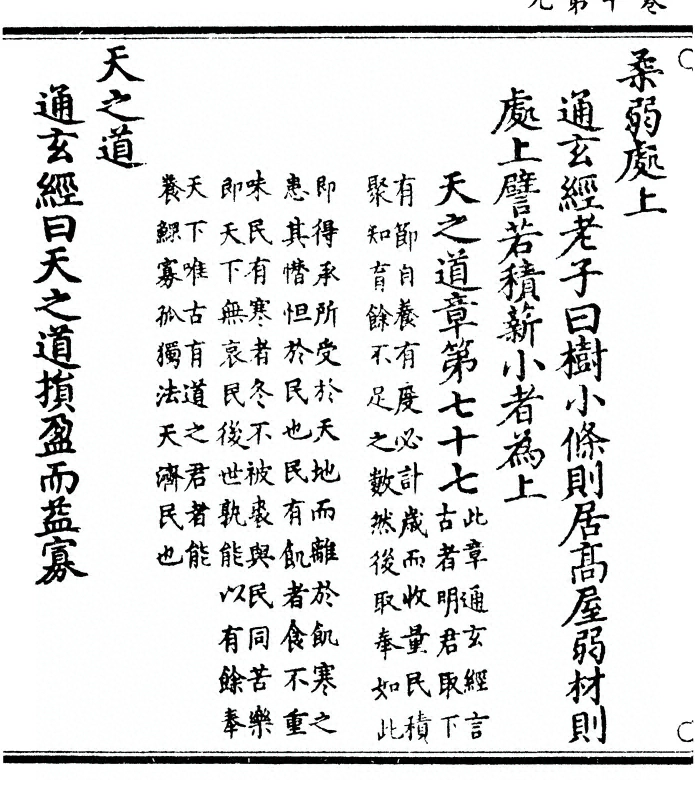 柔弱處上
通玄經老子曰樹小條則居高屋弱材則
處上譬若積薪小者為上
天之道章第七十七此章通玄經言
古者明君取下
有節自養有度必計歲而收量民積
聚知育餘不足之數然後取奉如此
即得承所受於天地而離於飢寒之
患其憯怛於民也民有飢者食不重
味民有寒者冬不被裘與民同苦樂
即天下無哀民後世孰能以有餘奉
天下唯古有道之君者能
養鰥寡孤獨法天濟民也
天之道
通玄經曰天之道損盈而益寡